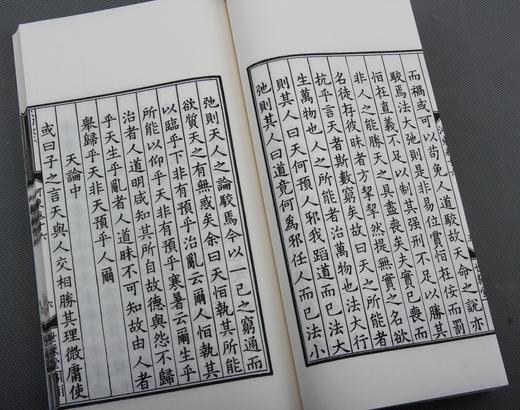 而禍或可以苟免人道駁故天命之說亦
駁焉法大弛則是非易位賞恒在佞而罰
恒在直義不足以制其强刑不足以勝其
非人之能勝天之具盡喪矣夫實已喪而
名徒存彼昧者方挈挈然提無實之名欲
抗乎言天者斯數窮矣故曰天之所能者
生萬物也人之所能者治萬物也法大行
則其人曰天何預人邪我蹈道而已法大
弛則其人曰道竟何爲邪任人而已法小
弛則天人之論駁焉今以一己之窮通而
欲質天之有無惑矣余曰天恒執其所能
以臨乎下非有預乎治亂云爾人恒執其
所能以仰乎天非有預乎寒暑云爾生乎
治者人道明咸知其所自故德與怨不歸
乎天生乎亂者人道昧不可知故由人者
舉歸乎天非天預乎人爾
天論中
或曰子之言天與人交相勝其理微庸使